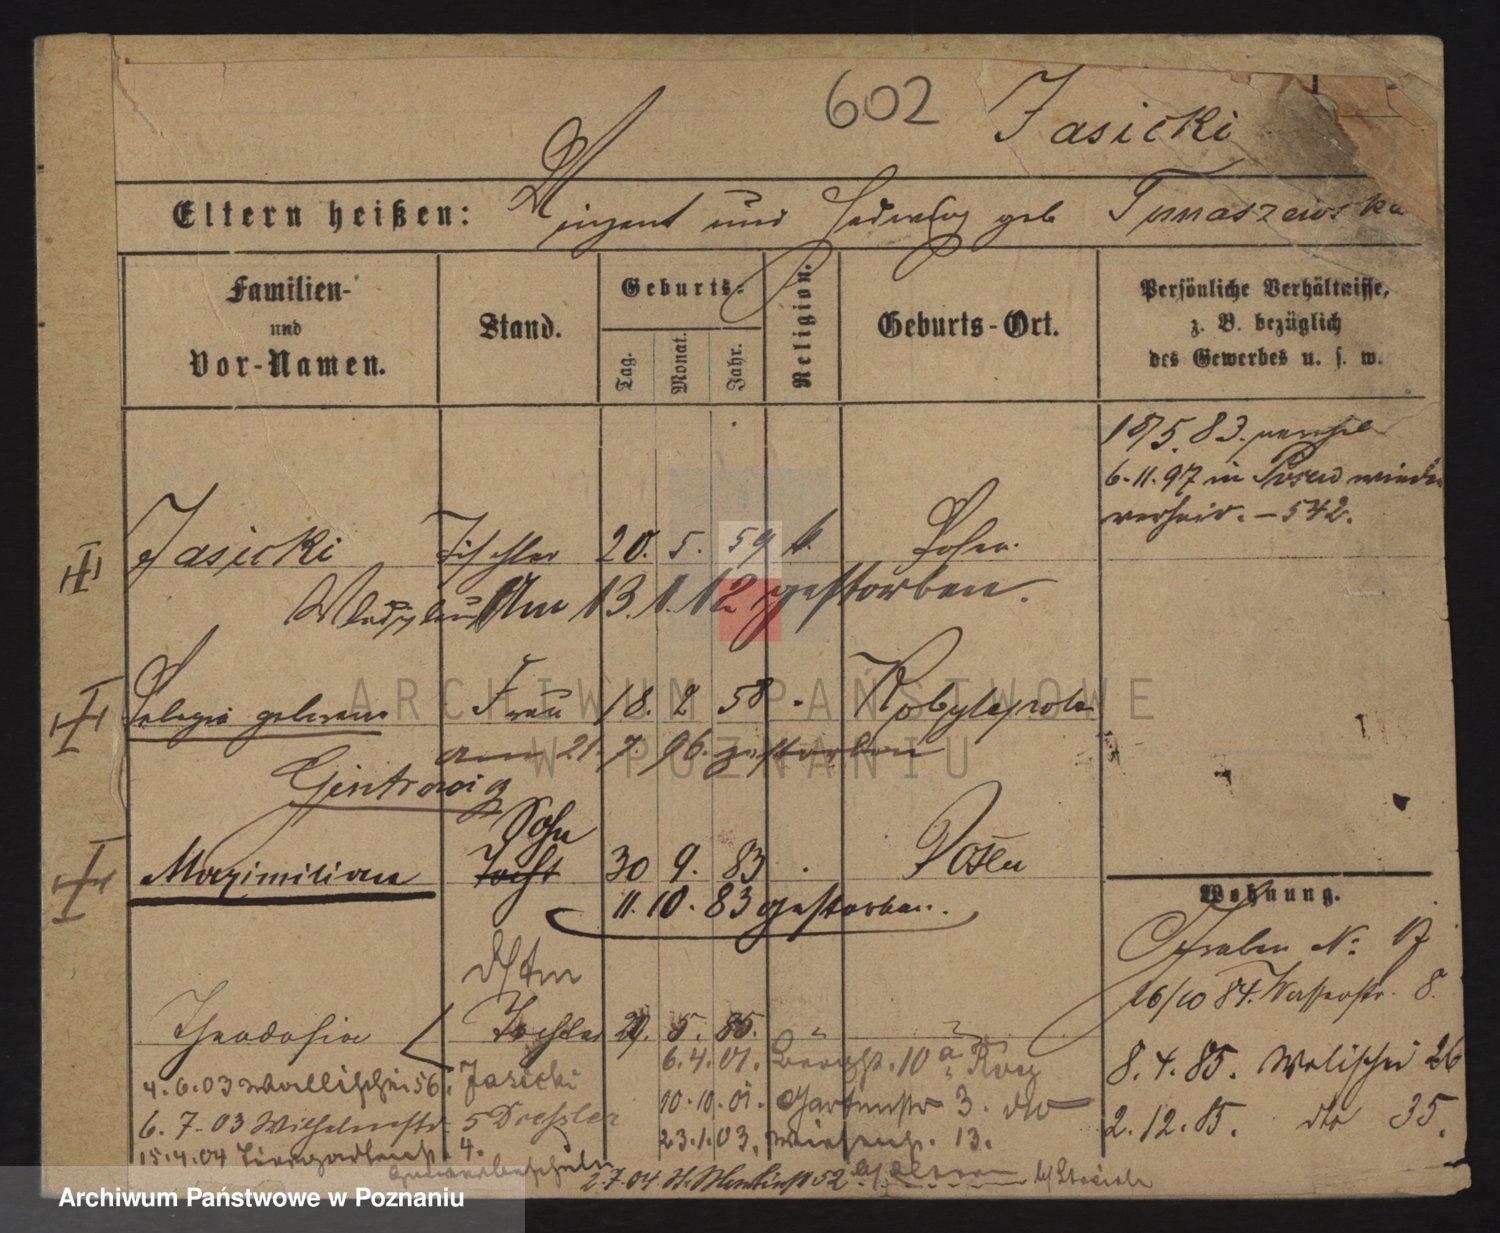 602 Jasicki
Eltern heißen: Vinzent und Hedwig geb Tomaszewska
Familien-
und
Vor-Namen.
Stand.
Geburts-
Tag.
Monat.
Jahr.
Religion.
Geburts-Ort.
Persönliche Verhältnisse,
z. B. bezüglich
des Gewerbes u. s. w.
18/5. 83.
6.11.97 in Posen wieder
verheir. - 542.
Jasicki Tischler 20. 5. 59 k. Posen.
Wladyslaus Am 13. 1. 12 gestorben.
Pelagia geborene Frau 18. 2 58 Kobylepole
am 21. 7. 96. gestorben
Gintrowicz
Sohn
Maximilian Tocht 30 9. 83 Posen
11. 10. 83 gestorben.
Wohnung.
Graben No 17
26/10 84. Wasserstr. 8.
8. 4. 85. Wallischei 26
2. 12. 85. dto 35.
Theodosia Tochter 29. 5. 85.
6. 4. 01. 10a
4. 6. 03 Wallischei 56. Jasicki 10. 10. 01. Gartenstr 3. dto
6. 7. 03 Wilhelmstr 5 Dressler 23. 1. 03. Wiesenstr. 13.
15. 4. 04 Tiergartenstr 4.
2. 7. 04 St. Martinstr 52
ARCHIWUM PAŃSTWOWE
W POZNANIU
Archiwum Państwowe w Poznaniu